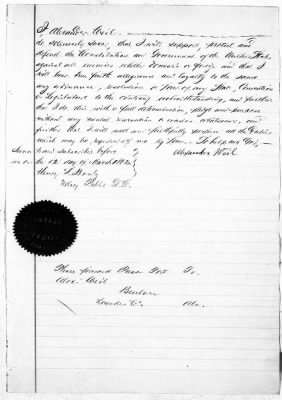 I Alexander Weil
do solemnly swear, that I will support, protect and
defend the Constitution and Government of the United States
against all enemies whether domestic or foreign and that I
will bear true faith allegiance and loyalty to the same
any ordinance, resolution or law of any State, Convention
or Legislature to the contrary notwithstanding, and further
that I do this with a full determination, pledge and purpose
without any mental reservation or evasion whatsoever, and
further that I will well and faithfully perform all the duties
which may be required of me by law. So help me God,
Alexander Weil
Sworn and subscribed before
me on the 12 day of March 1872
Henry
Notary Public D.C.
Please forward Pass Port to.
Alex. Weil
Benton
Lowndes Co. Ala.
NOTARY
PUBLIC